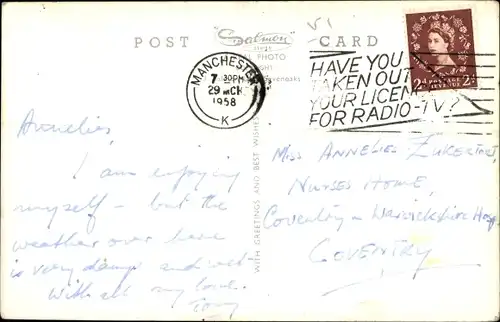 POST CARD
"Salmon"
PHOTO
VI
MANCHESTER
7 30PM
29 MCH
1958
K
HAVE YOU
TAKEN OUT
YOUR LICEN
FOR RADIO-TV?
POSTAGE
REVENUE
2D 2D
WITH GREETINGS AND BEST WISHES
Annelies,
I am enjoying
myself - but the
weather over here
is very damp and wet-
With all my love.
Tony
Miss ANNELIES ZUKERTORT
NURSES HOME,
Coventry & Warwickshire Hosp.
COVENTRY